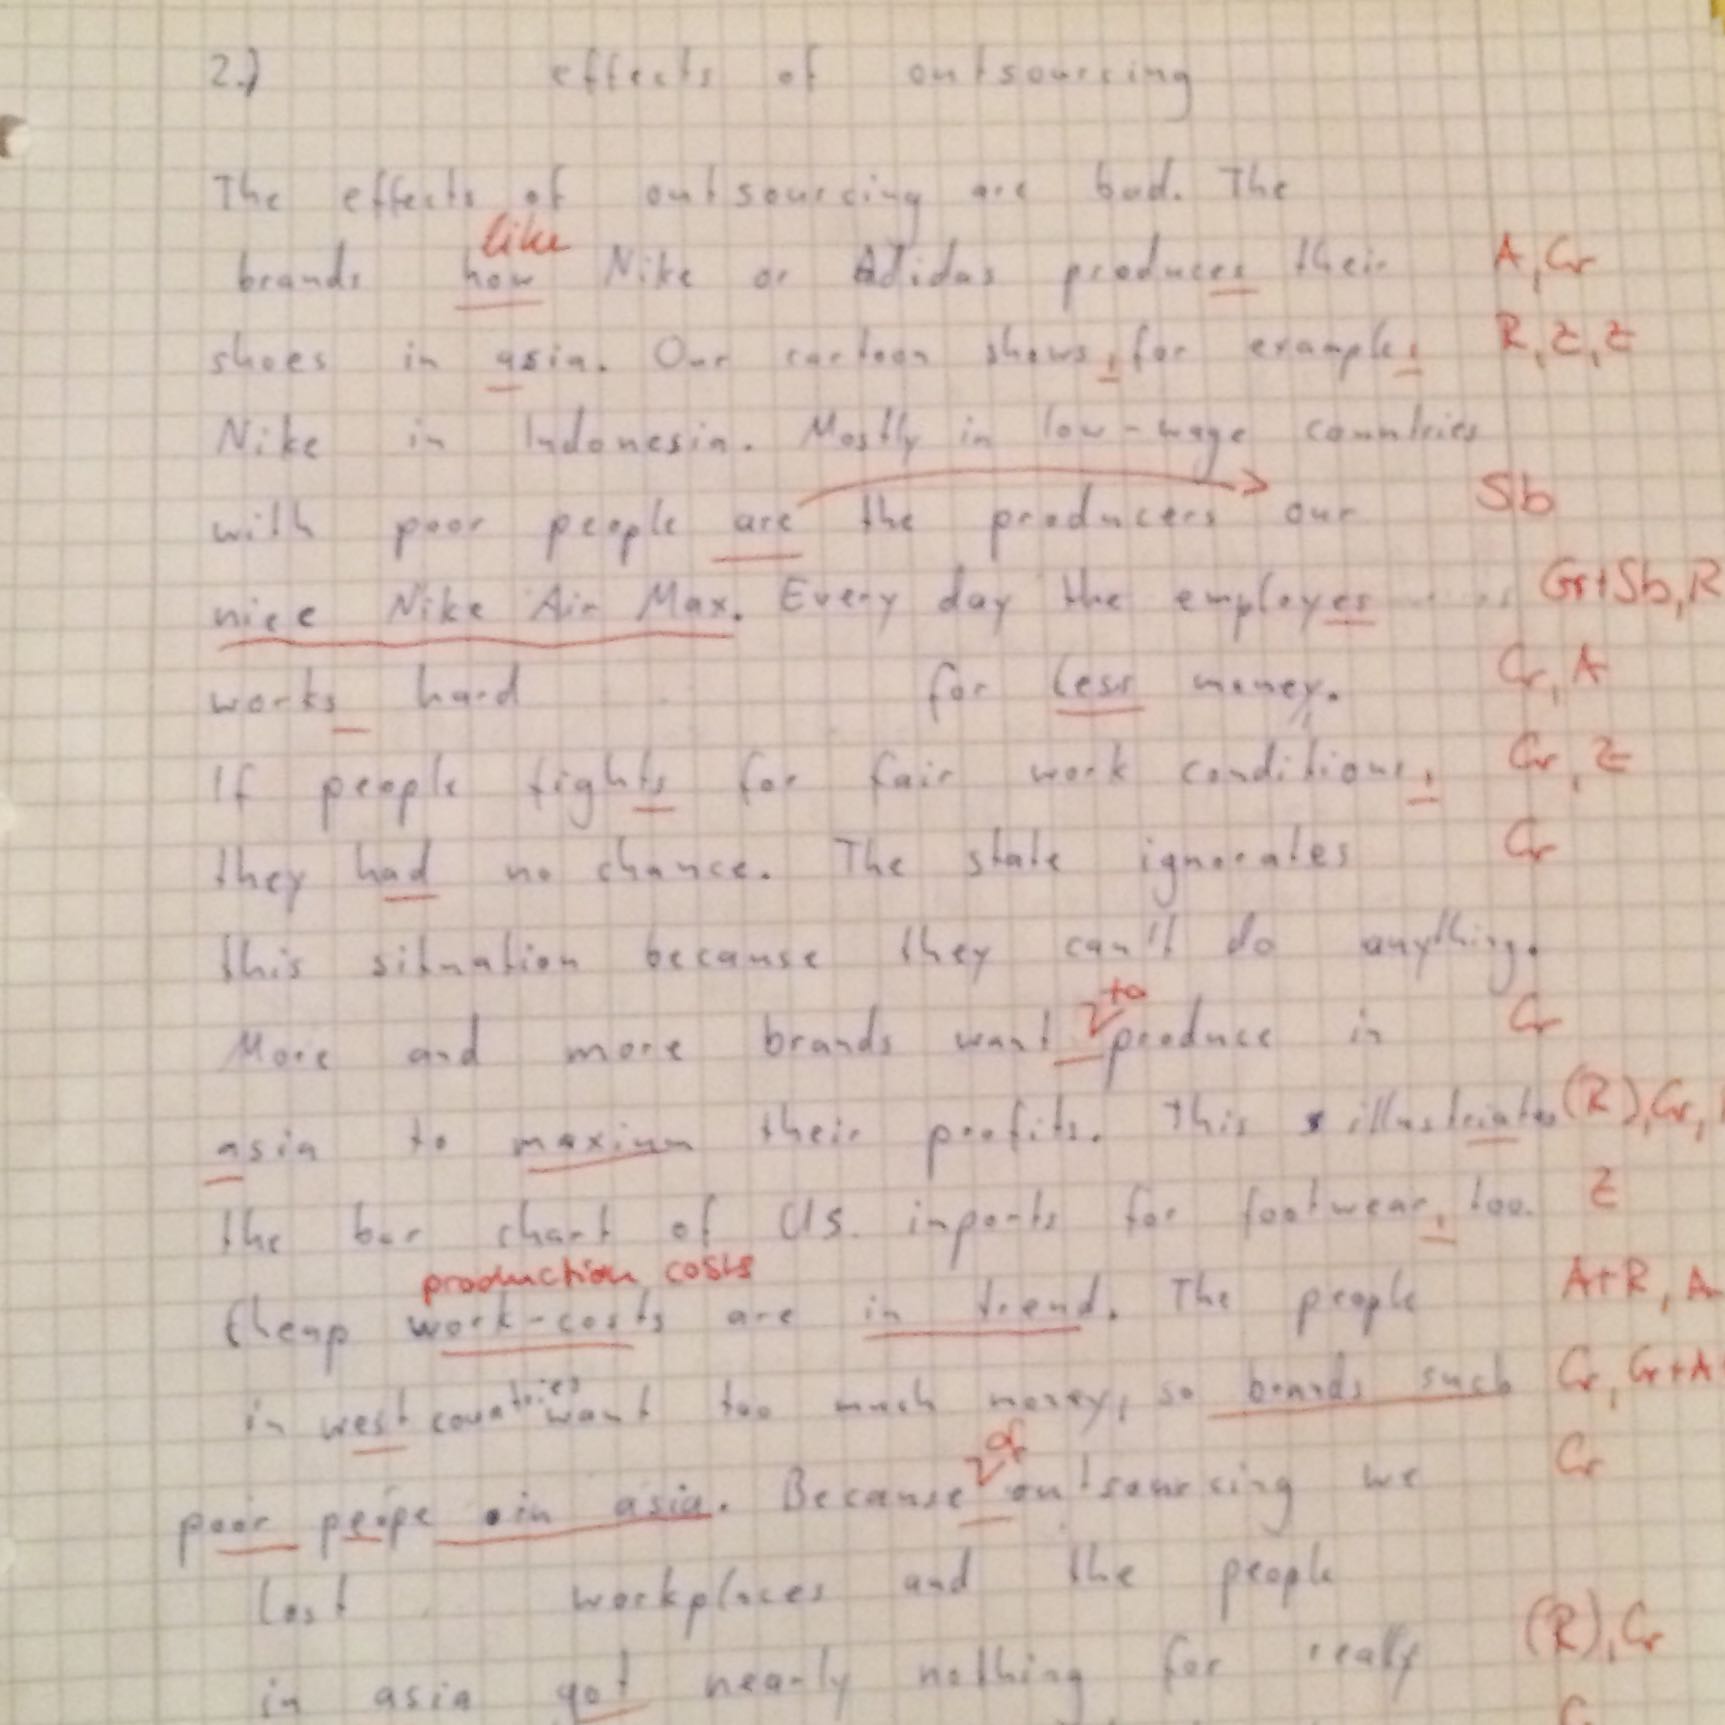 2.) effects of outsourcing
The effects of outsourcing are bad. The
like
brands how Nike or Adidas produces their A, Gr
shoes in asia. Our cartoon shows, for example, R, Z, Z
Nike in Indonesia. Mostly in low-wage countries
with poor people are the producers our Sb
nice Nike Air Max. Every day the employes Gr+Sb, R
works hard for less money. Gr, A
If people fights for fair work conditions, Gr, Z
they had no chance. The state ignorates Gr
this situation because they can't do anything.
to
More and more brands want produce in Gr
asia to maximum their profits. This illustriates (R), Gr,
the bar chart of US. imports for footwear, too. Z
production costs
Cheap work-costs are in trend. The people A+R, A
in west countries want too much money, so brands such Gr, Gr+A
of
poor peope in asia. Because outsourcing we Gr
lost workplaces and the people
in asia got nearly nothing for realy (R), Gr